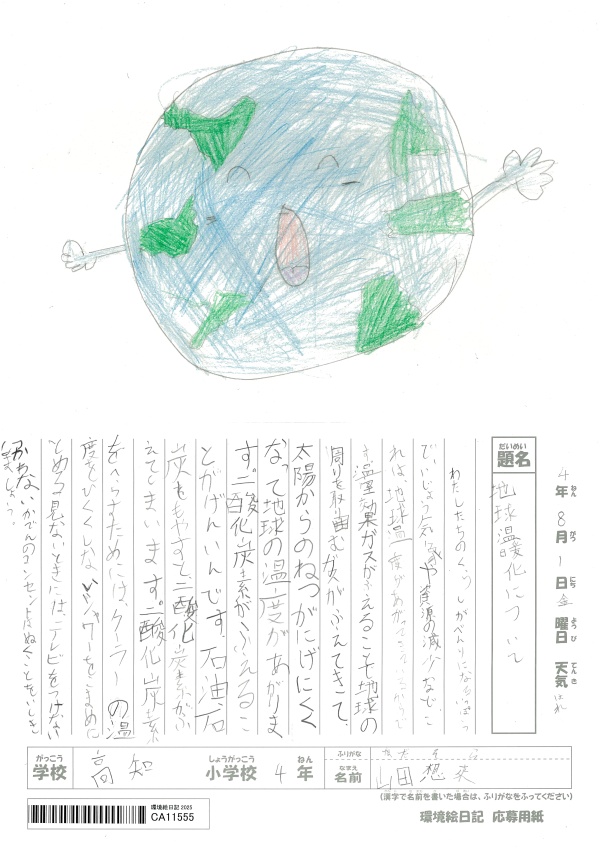 4年8月1日金曜日 天気はれ
だいめい
題名
地球温暖化について
わたしたちのくらしがべんりになるいっぽう
でいじょう気象や資源の減少など
れは、地球温度があがってきているからで
す。温室効果ガスがふえることで地球の
周りを取り囲む がふえてきて、
太陽からのねつがにげにくく
なって地球の温度があがりま
す。二酸化炭素がふえるこ
とがげんいんです。石油石
炭をもやすと二酸化炭素がふ
えてしまいます。二酸化炭素
をへらすためには、クーラーの温
度をひくくしない、シャワーをこまめに
とめる見ないときにはテレビをつけない
つかわないかでんのコンセントをぬくことをいしき
しましょう。
がっこう しょうがっこう ねん ふりがな
学校 高知 小学校 4年 なまえ 名前 山田想来
(漢字で名前を書いた場合は、ふりがなをふってください)
環境絵日記 応募用紙
環境絵日記 2025
CA11555